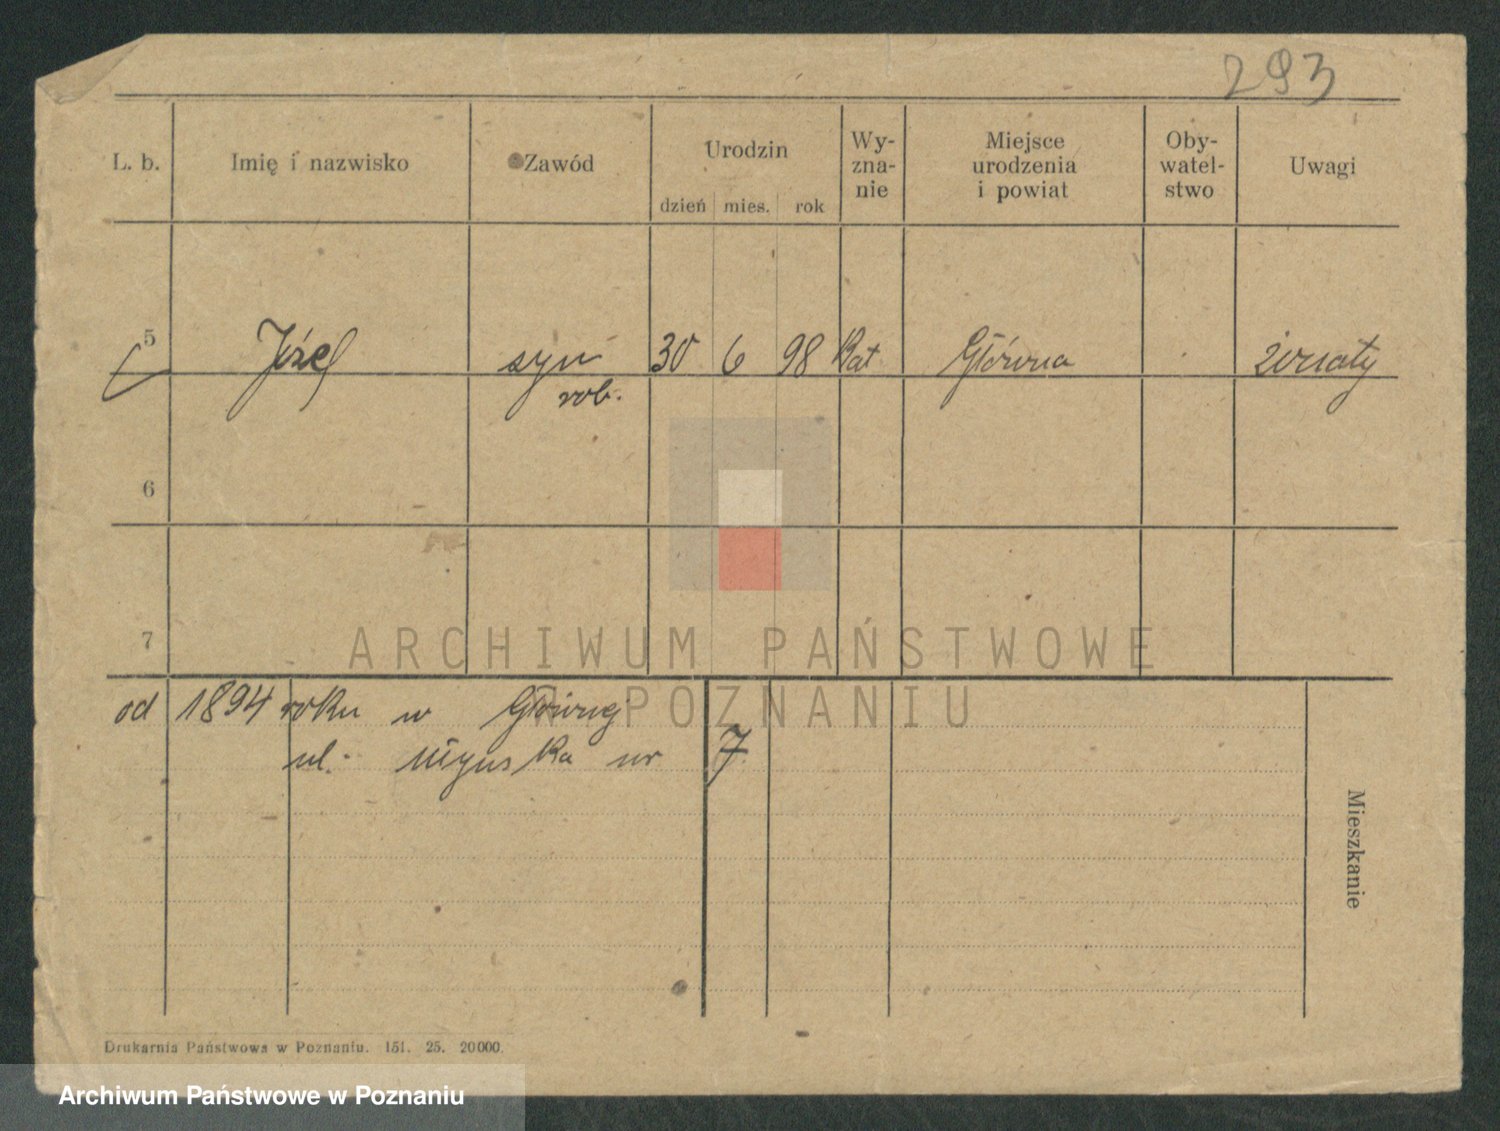 293
L. b. Imię i nazwisko Zawód Urodzin Wy-zna-nie Miejsce urodzenia i powiat Oby-watel-stwo Uwagi
dzień mies. rok
5 Józef syn 30 6 98 Kat Główna żonaty
rob.
6
7
od 1894 roku w Głównej
ul. nr 7
Mieszkanie
Drukarnia Państwowa w Poznaniu. 151. 25. 20000.
ARCHIWUM PAŃSTWOWE
W POZNANIU
Archiwum Państwowe w Poznaniu